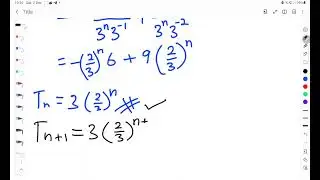 Title
3ⁿ3⁻¹ 3ⁿ3⁻²
= -(2/3)ⁿ 6 + 9 (2/3)ⁿ
Tₙ = 3 (2/3)ⁿ # ✓
Tₙ₊₁ = 3 (2/3)ⁿ⁺